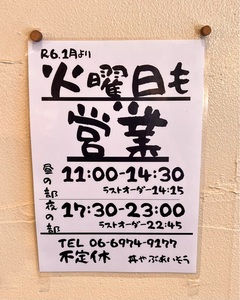 R6.1月より
火曜日も
営業
昼の部 11:00-14:30
ラストオーダー 14:15
夜の部 17:30-23:00
ラストオーダー 22:45
TEL 06-6974-9177
不定休 丼やぶあいそう